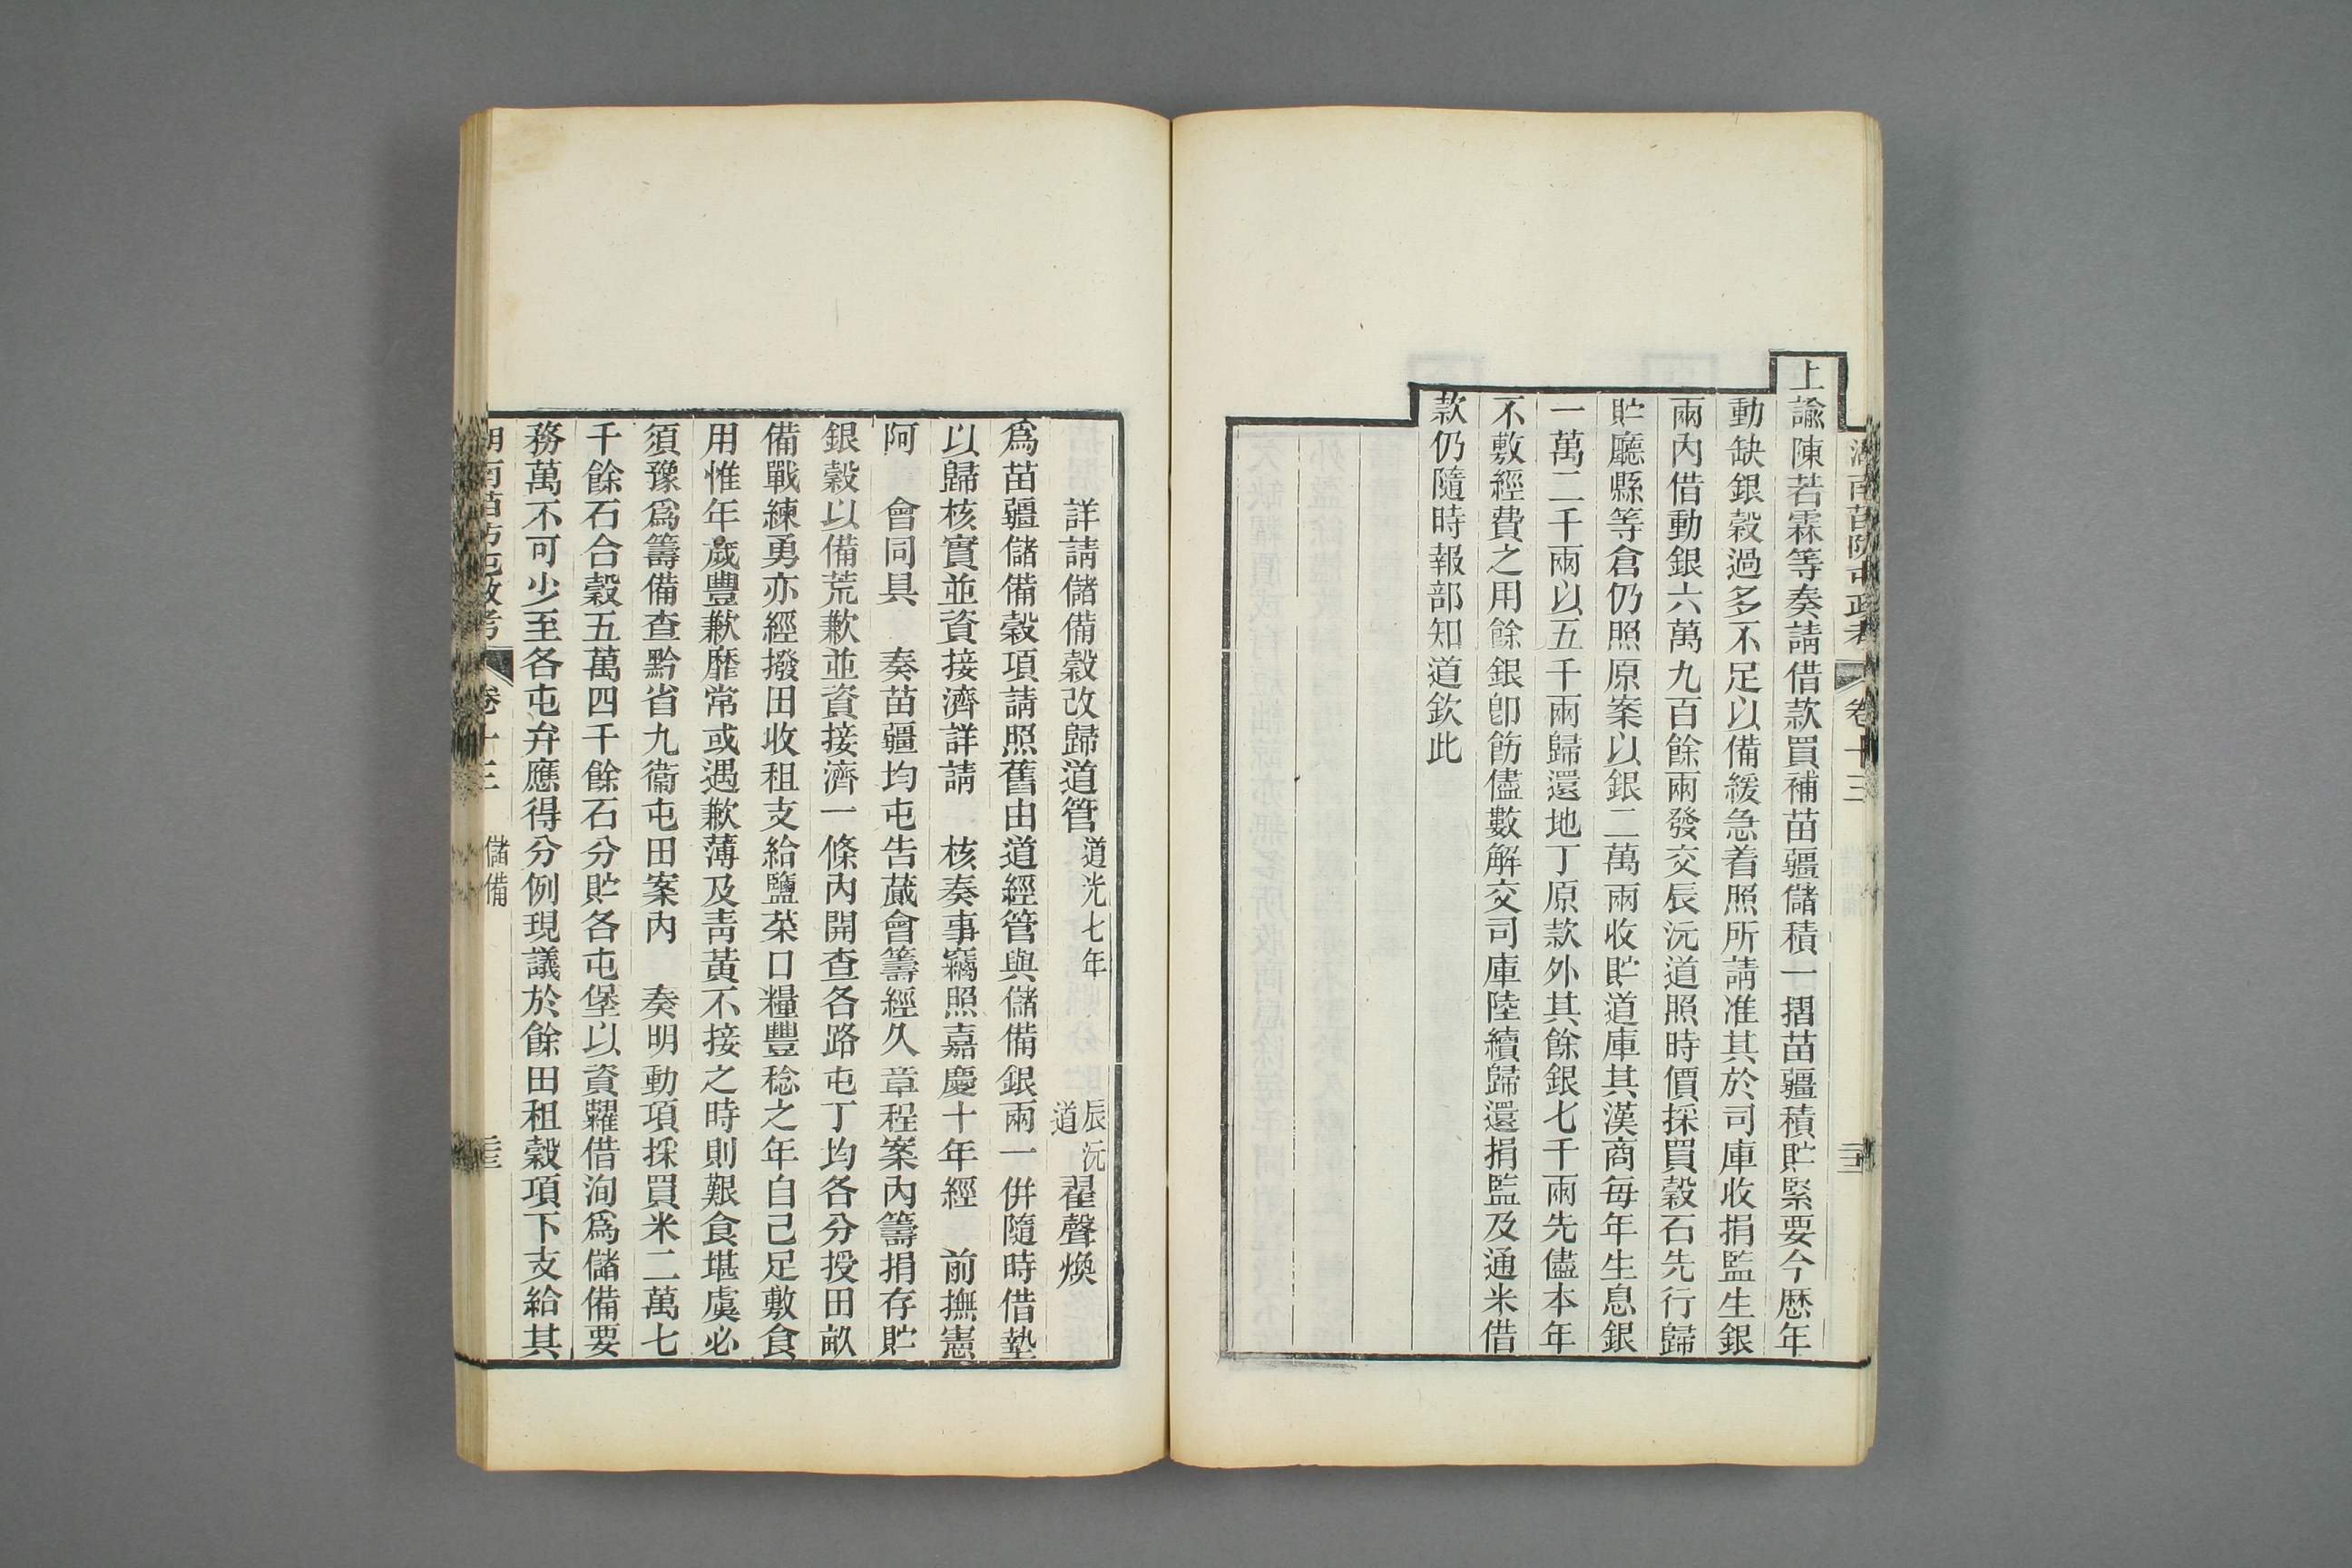 湖南苗防屯政考 卷十三
上諭陳若霖等奏請借款買補苗疆儲積一摺苗疆積貯緊要今歷年
動缺銀穀過多不足以備緩急着照所請准其於司庫收捐監生銀
兩內借動銀六萬九百餘兩發交辰沅道照時價採買穀石先行歸
貯廳縣等倉仍照原案以銀二萬兩收貯道庫其漢商每年生息銀
一萬二千兩以五千兩歸還地丁原款外其餘銀七千兩先儘本年
不敷經費之用餘銀卽飭儘數解交司庫陸續歸還捐監及通米借
款仍隨時報部知道欽此
詳請儲備穀改歸道管 道光七年 辰沅道 翟聲煥
爲苗疆儲備穀項請照舊由道經管與儲備銀兩一併隨時借墊
以歸核實並資接濟詳請 核奏事竊照嘉慶十年經 前撫憲
阿 會同具 奏苗疆均屯告蕆會籌經久章程案內籌捐存貯
銀穀以備荒歉並資接濟一條內開查各路屯丁均各分授田畝
備戰練勇亦經撥田收租支給鹽菜口糧豐稔之年自己足敷食
用惟年歲豐歉靡常或遇歉薄及靑黃不接之時則艱食堪虞必
須豫爲籌備查黔省九衞屯田案內 奏明動項採買米二萬七
千餘石合穀五萬四千餘石分貯各屯堡以資糶借洵爲儲備要
務萬不可少至各屯弁應得分例現議於餘田租穀項下支給其
湖南苗防屯政考 卷十三 儲備